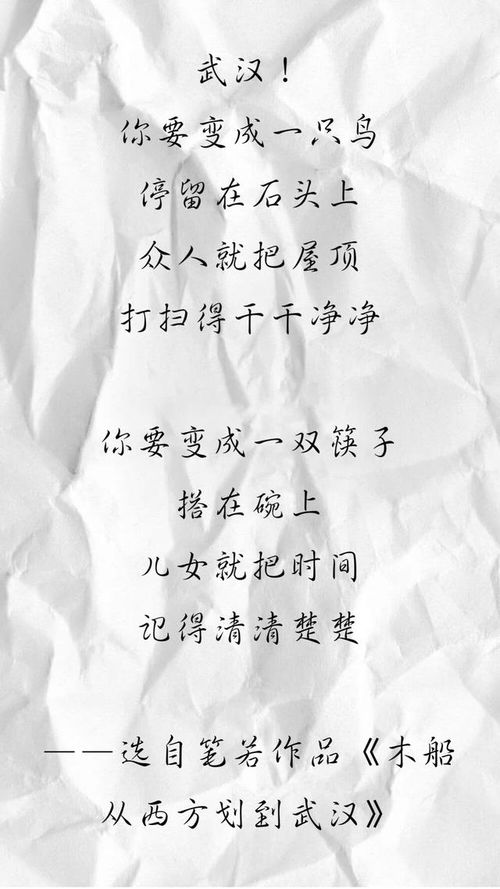 武汉！
你要变成一只鸟
停留在石头上
众人就把屋顶
打扫得干干净净
你要变成一双筷子
搭在碗上
儿女就把时间
记得清清楚楚
——选自笔若作品《木船
从西方划到武汉》